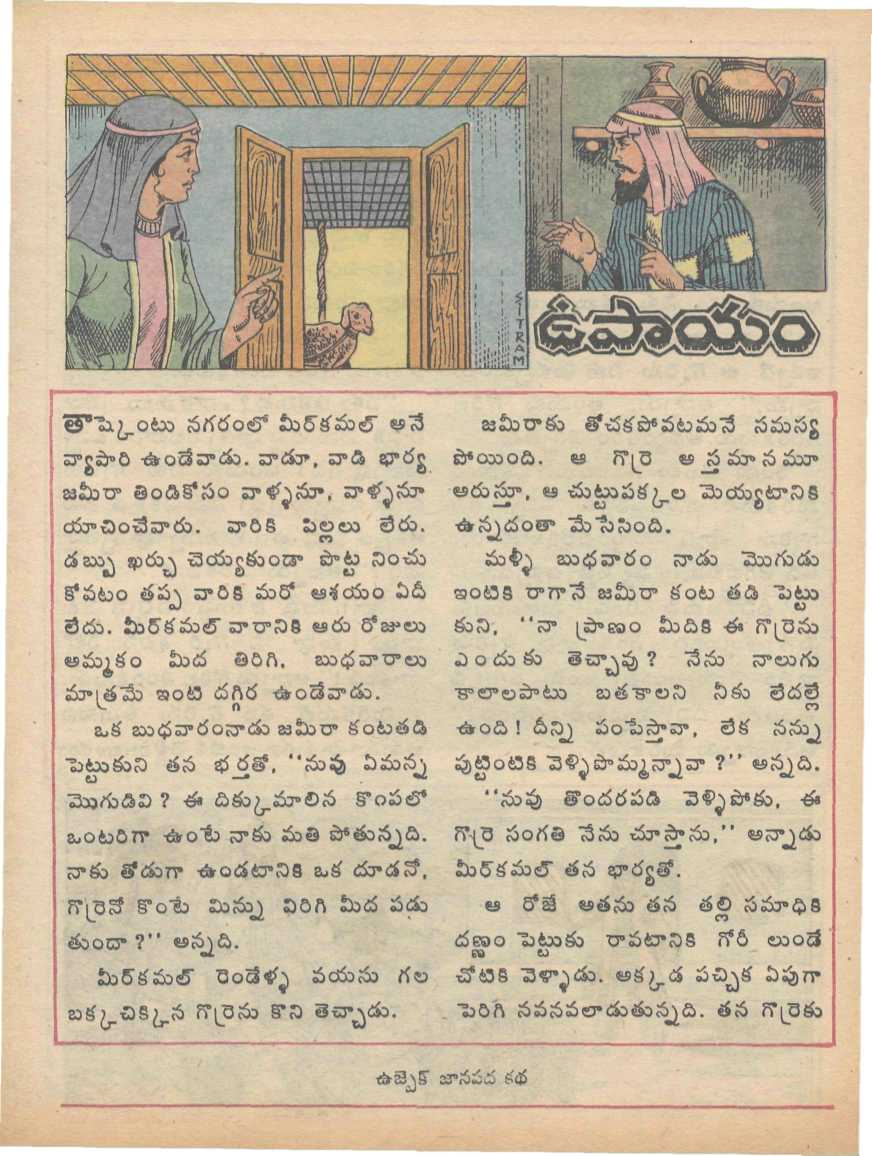 SITRAM
ఉపాయం
తాష్కెంటు నగరంలో మీర్‌కమల్ అనే
వ్యాపారి ఉండేవాడు. వాడూ, వాడి భార్య
జమీరా తిండికోసం వాళ్ళనూ, వాళ్ళనూ
యాచించేవారు. వారికి పిల్లలు లేరు.
డబ్బు ఖర్చు చెయ్యకుండా పొట్ట నించు
కోవటం తప్ప వారికి మరో ఆశయం ఏదీ
లేదు. మీర్‌కమల్ వారానికి ఆరు రోజులు
అమ్మకం మీద తిరిగి, బుధవారాలు
మాత్రమే ఇంటి దగ్గిర ఉండేవాడు.
ఒక బుధవారంనాడు జమీరా కంటతడి
పెట్టుకుని తన భర్తతో, ‘‘నువు ఏమన్న
మొగుడివి? ఈ దిక్కుమాలిన కొంపలో
ఒంటరిగా ఉంటే నాకు మతి పోతున్నది.
నాకు తోడుగా ఉండటానికి ఒక దూడనో,
గొర్రెనో కొంటే మిన్ను విరిగి మీద పడు
తుందా?’’ అన్నది.
మీర్‌కమల్ రెండేళ్ళ వయసు గల
బక్కచిక్కిన గొర్రెను కొని తెచ్చాడు.
జమీరాకు తోచకపోవటమనే సమస్య
పోయింది. ఆ గొర్రె అస్తమానమూ
అరుస్తూ, ఆ చుట్టుపక్కల మెయ్యటానికి
ఉన్నదంతా మేసేసింది.
మళ్ళీ బుధవారం నాడు మొగుడు
ఇంటికి రాగానే జమీరా కంట తడి పెట్టు
కుని, ‘‘నా ప్రాణం మీదికి ఈ గొర్రెను
ఎందుకు తెచ్చావు? నేను నాలుగు
కాలాలపాటు బతకాలని నీకు లేదల్లే
ఉంది! దీన్ని పంపేస్తావా, లేక నన్ను
పుట్టింటికి వెళ్ళిపొమ్మన్నావా?’’ అన్నది.
‘‘నువు తొందరపడి వెళ్ళిపోకు, ఈ
గొర్రె సంగతి నేను చూస్తాను,’’ అన్నాడు
మీర్‌కమల్ తన భార్యతో.
ఆ రోజే అతను తన తల్లి సమాధికి
దణ్ణం పెట్టుకు రావటానికి గోరీ లుండే
చోటికి వెళ్ళాడు. అక్కడ పచ్చిక ఏపుగా
పెరిగి నవనవలాడుతున్నది. తన గొర్రెకు
ఉజ్బెక్ జానపద కథ